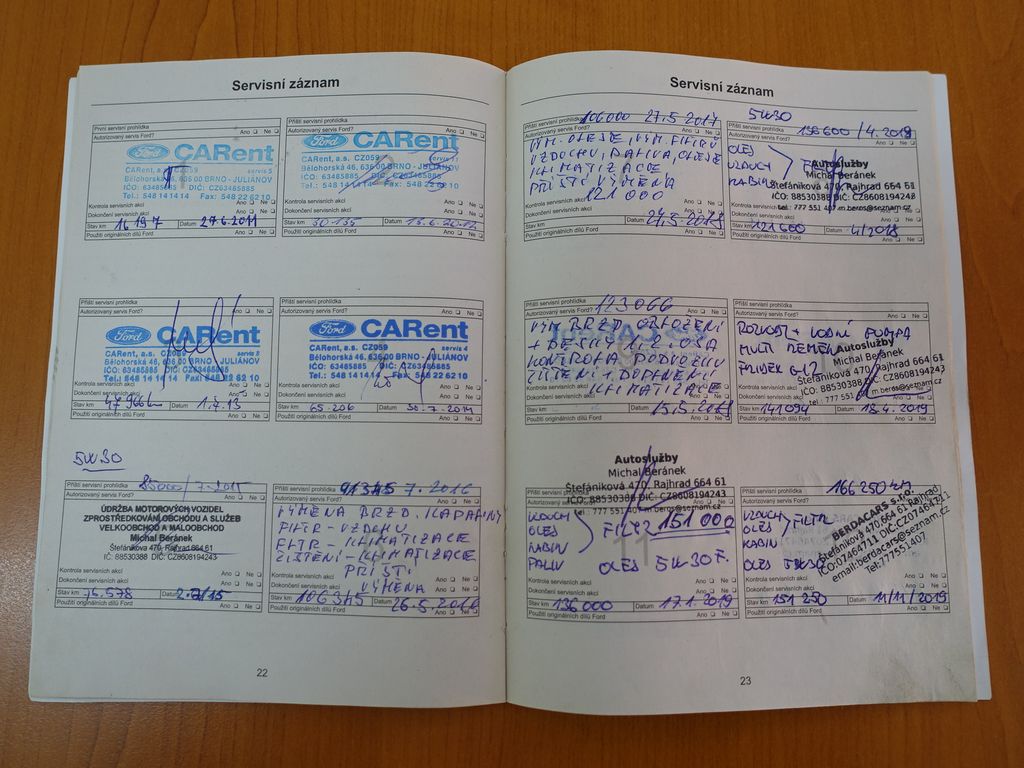 Servisní záznam
První servisní prohlídka
Autorizovaný servis Ford? Ano Ne
Ford CARent
servis 5
CARent, a.s. CZ059
Bělohorská 46, 636 00 BRNO - JULIÁNOV
IČO: 63485885 DIČ: CZ63485885
Tel.: 548 14 14 14 Fax: 548 22 62 10
Kontrola servisních akcí Ano Ne
Dokončení servisních akcí Ano Ne
Stav km 16 197 Datum 27.6.2011
Použití originálních dílů Ford Ano Ne
Příští servisní prohlídka
Autorizovaný servis Ford? Ano Ne
Ford CARent
CARent, a.s. CZ059
Bělohorská 46, 636 00 BRNO - JULIÁNOV
IČO: 63485885 DIČ: CZ63485885
Tel.: 548 14 14 14 Fax: 548 22 62 10
Kontrola servisních akcí Ano Ne
Dokončení servisních akcí Ano Ne
Stav km 30 135 Datum 15.6.2012
Použití originálních dílů Ford Ano Ne
Příští servisní prohlídka
Autorizovaný servis Ford? Ano Ne
Ford CARent
CARent, a.s. CZ059
Bělohorská 46, 636 00 BRNO - JULIÁNOV
IČO: 63485885 DIČ: CZ63485885
Tel.: 548 14 14 14 Fax: 548 22 62 10
Kontrola servisních akcí Ano Ne
Dokončení servisních akcí Ano Ne
Stav km 47 966 Datum 1.7.13
Použití originálních dílů Ford Ano Ne
Příští servisní prohlídka
Autorizovaný servis Ford? Ano Ne
Ford CARent
servis 4
CARent, a.s. CZ059
Bělohorská 46, 636 00 BRNO - JULIÁNOV
IČO: 63485885 DIČ: CZ63485885
Tel.: 548 14 14 14 Fax: 548 22 62 10
Kontrola servisních akcí Ano Ne
Dokončení servisních akcí Ano Ne
Stav km 65 206 Datum 30.7.2014
Použití originálních dílů Ford Ano Ne
5W30
Příští servisní prohlídka 85000/7-2015
Autorizovaný servis Ford? Ano Ne
ÚDRŽBA MOTOROVÝCH VOZIDEL
ZPROSTŘEDKOVÁNÍ OBCHODU A SLUŽEB
VELKOOBCHOD A MALOOBCHOD
Michal Beránek
Štefánikova 470, Rajhrad 664 61
IČ: 88530388 DIČ: CZ8608194243
Kontrola servisních akcí Ano Ne
Dokončení servisních akcí Ano Ne
Stav km 75.578 Datum 2.7/15
Použití originálních dílů Ford Ano Ne
7.2016
VÝMĚNA BRZD. KAPALINY
FILTR - VZDUCHU
FILTR - KLIMATIZACE
ČIŠTĚNÍ - KLIMATIZACE
PŘÍŠTÍ
VÝMĚNA
Stav km 106 345 Datum 26.5.2016
Použití originálních dílů Ford Ano Ne
22
Servisní záznam
106000 27.5 2017
VÝM. OLEJE, VÝM. FILTRŮ
VZDUCHU, PALIVA, OLEJE
KLIMATIZACE
PŘÍŠTÍ VÝMĚNA
121 000
Kontrola servisních akcí Ano Ne
Dokončení servisních akcí Ano Ne
Stav km Datum
Použití originálních dílů Ford Ano Ne
5W30
136 600 / 4.2019
OLEJ
VZDUCH
KABIN
Autoslužby
Michal Beránek
Štefánikova 470, Rajhrad 664 61
IČO: 88530388 DIČ: CZ8608194243
tel.: 777 551 407 m.beros@seznam.cz
Stav km 121 600 Datum 4/2018
Použití originálních dílů Ford Ano Ne
Příští servisní prohlídka 123066
VÝM BRZD OBLOŽENÍ
+ DESKY 1.+2. OSA
KONTROLA PODVOZKU
ČIŠTĚNÍ + DOPLNĚNÍ
KLIMATIZACE
Stav km Datum 15.5.2018
Použití originálních dílů Ford Ano Ne
Příští servisní prohlídka
ROZVOD + VODNÍ PUMPA
MULTI ŘEMEN
FRIDEX G12
Autoslužby
Michal Beránek
Štefánikova 470, Rajhrad 664 61
IČO: 88530388 DIČ: CZ8608194243
tel.: 777 551 m.beros@seznam.cz
Kontrola servisních akcí
Dokončení servisních akcí Ano Ne
Stav km 141094 Datum 18.4.2019
Použití originálních dílů Ford Ano Ne
Autoslužby
Michal Beránek
Štefánikova 470, Rajhrad 664 61
IČO: 88530388 DIČ: CZ8608194243
tel.: 777 551 m.beros@seznam.cz
VZDUCH
OLEJ
KABIN
PALIV
FILTR 151 000
OLEJ 5W30 F.
Kontrola servisních akcí Ano Ne
Dokončení servisních akcí Ano Ne
Stav km 136 000 Datum 17.1.2019
Použití originálních dílů Ford Ano Ne
Příští servisní prohlídka 166 250 KM
Autorizovaný servis Ford?
VZDUCH
OLEJ
KABIN
FILTR
OLEJ 5W30
BERDACARS s.r.o.
Štefánikova 470, 664 61 Rajhrad
IČO:07464711 DIČ:CZ07464711
email:berdacars@seznam.cz
Tel:777551407
Kontrola servisních akcí
Dokončení servisních akcí Ano Ne
Stav km 151 250 Datum 11/11/2019
Použití originálních dílů Ford Ano Ne
23